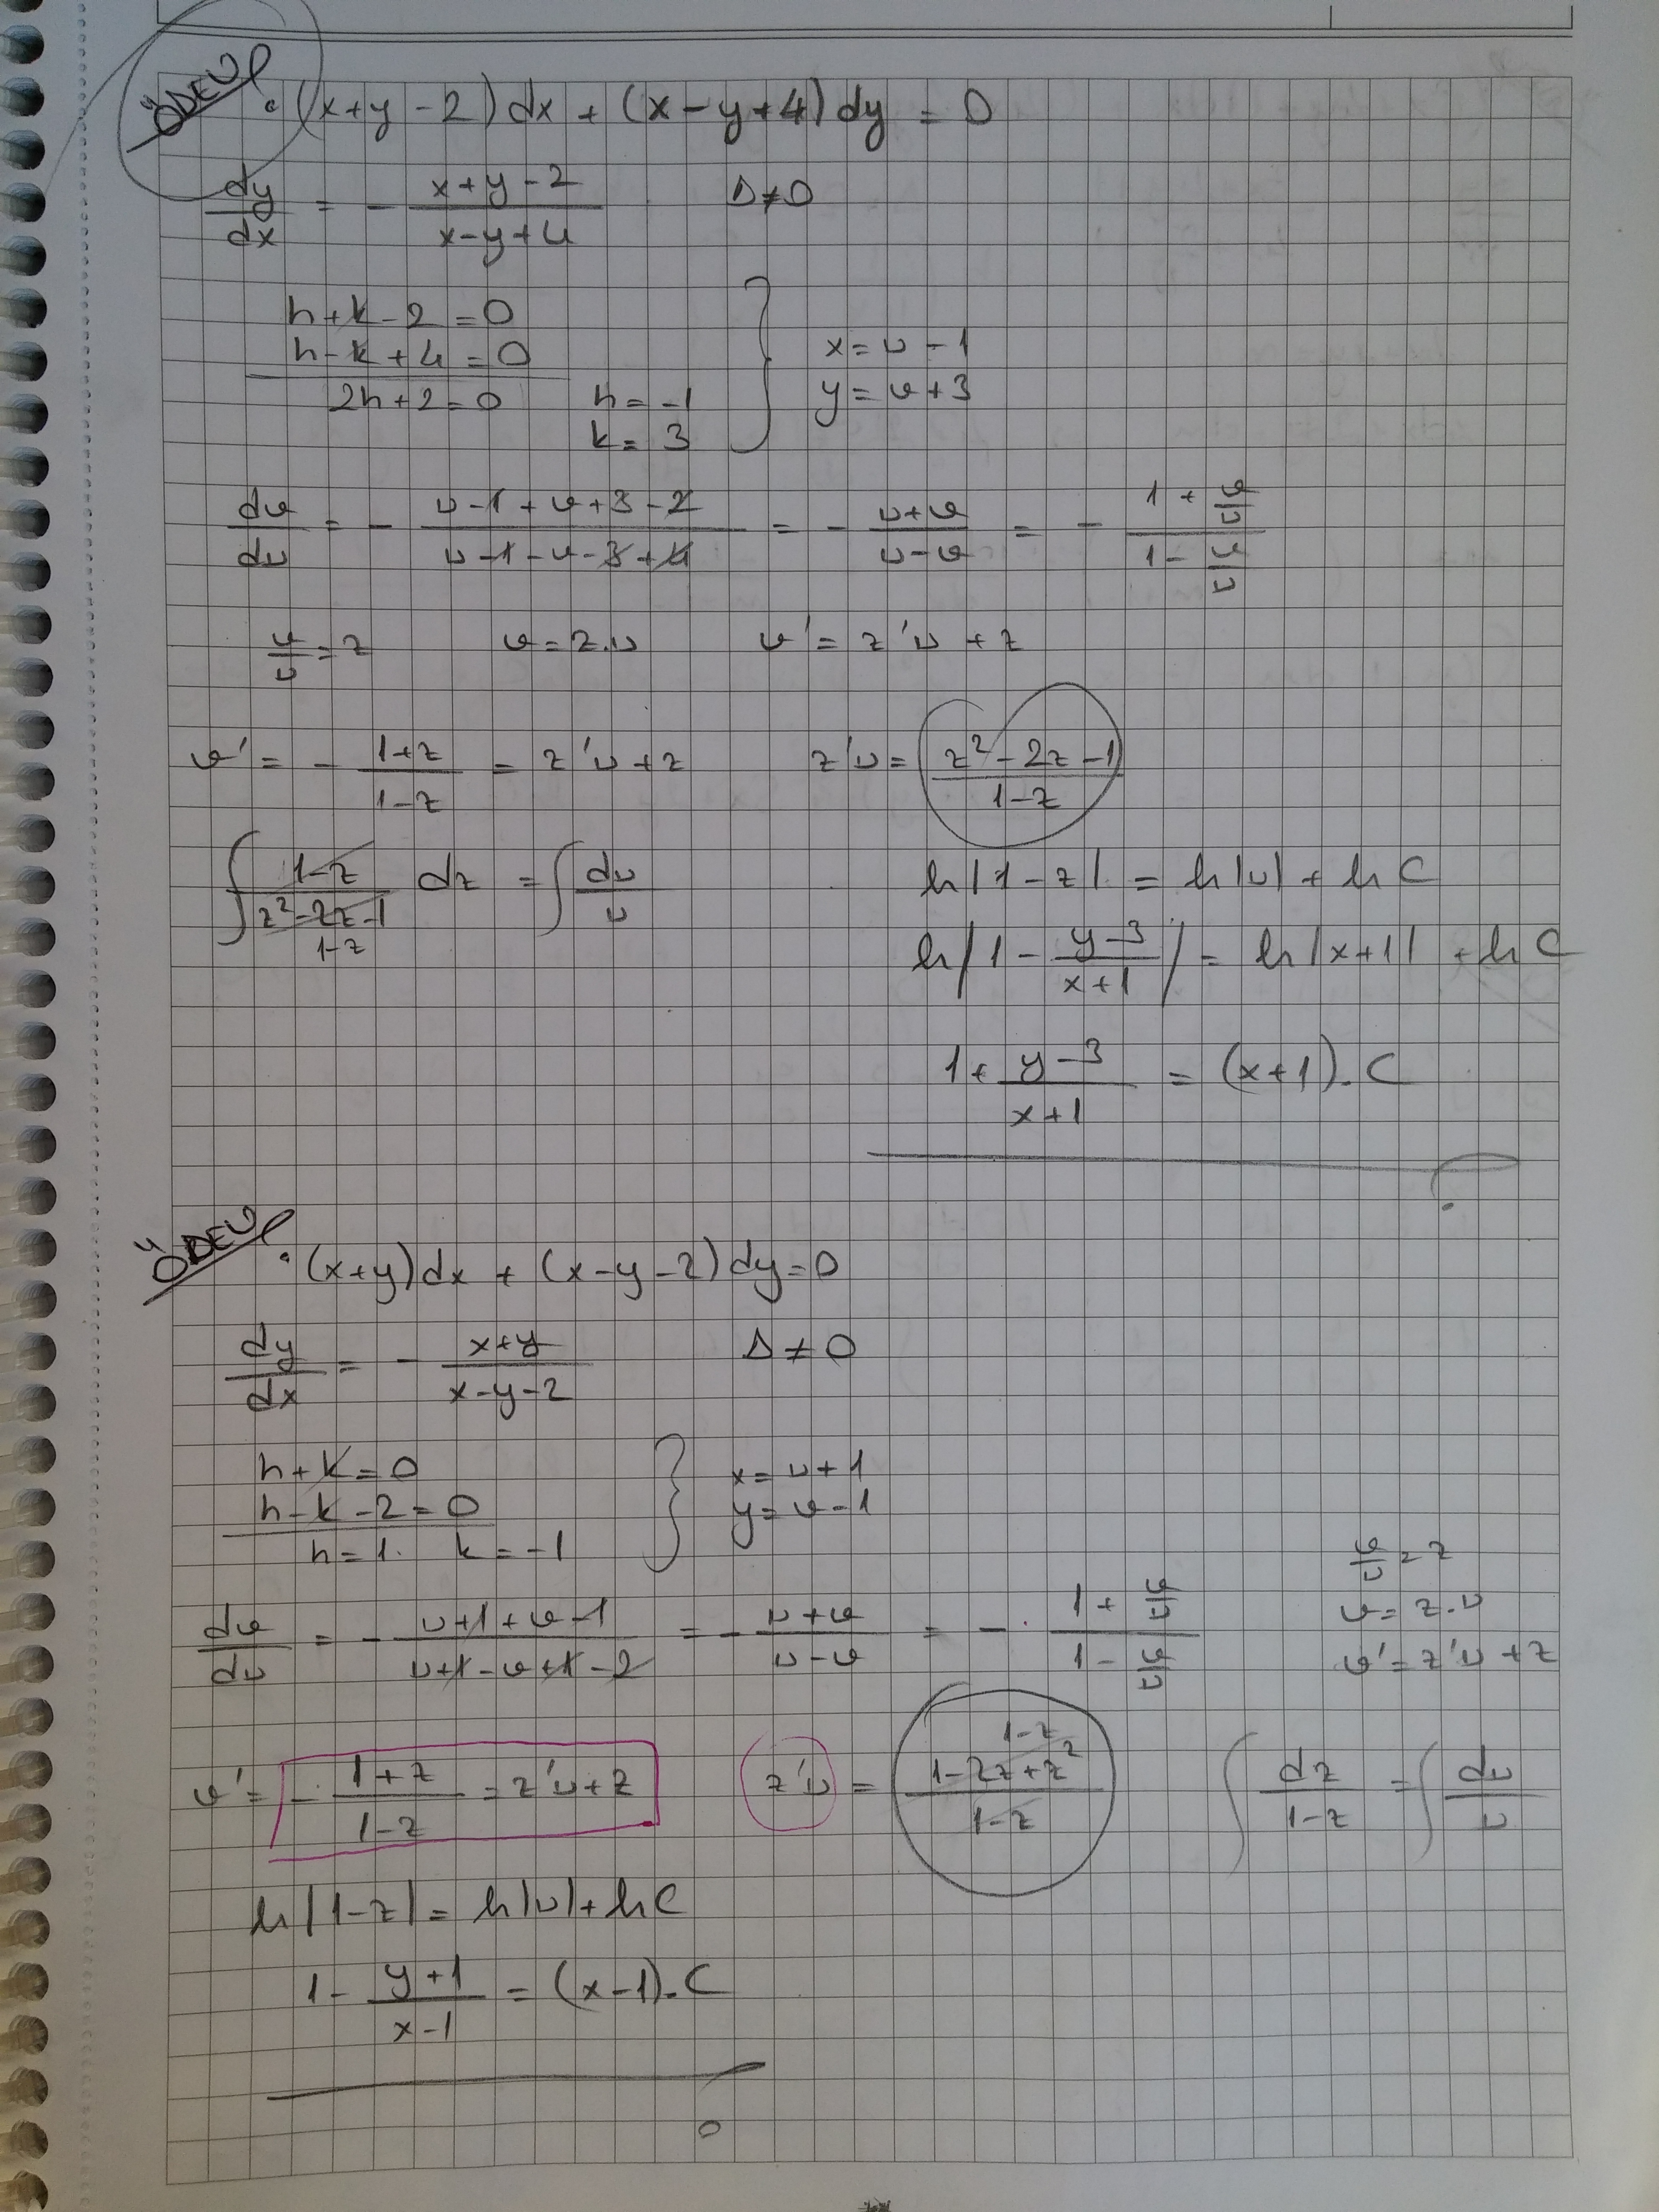 ÖDEV
• (x+y-2)dx + (x-y+4)dy = 0
dy/dx = - (x+y-2)/(x-y+4)   Δ≠0
h+k-2=0
h-k+4=0
2h+2=0   h=-1
k=3
x=u-1
y=v+3
dv/du = - (u-1+v+3-2)/(u-1-v-3+4) = - (u+v)/(u-v) = - (1+v/u)/(1-v/u)
v/u=z   v=z.u   v'=z'u+z
v' = - (1+z)/(1-z) = z'u+z   z'u = (z²-2z-1)/(1-z)
∫ (1-z)/(z²-2z-1) dz = ∫ du/u
1-z
ln|1-z| = ln|u| + ln C
ln|1 - (y-3)/(x+1)| = ln|x+1| + ln C
1 + (y-3)/(x+1) = (x+1).C
ÖDEV
• (x+y)dx + (x-y-2)dy=0
dy/dx = - (x+y)/(x-y-2)   Δ≠0
h+k=0
h-k-2=0
h=1.   k=-1
x=u+1
y=v-1
dv/du = - (u+1+v-1)/(u+1-v+1-2) = - (u+v)/(u-v) = - (1+v/u)/(1-v/u)
v/u=z
v=z.u
v'=z'u+z
v' = - (1+z)/(1-z) = z'u+z   z'u = (1-2z+z²)/(1-z)   ∫ dz/(1-z) = ∫ du/u
1-z
ln|1-z| = ln|u| + ln C
1 - (y+1)/(x-1) = (x-1).C